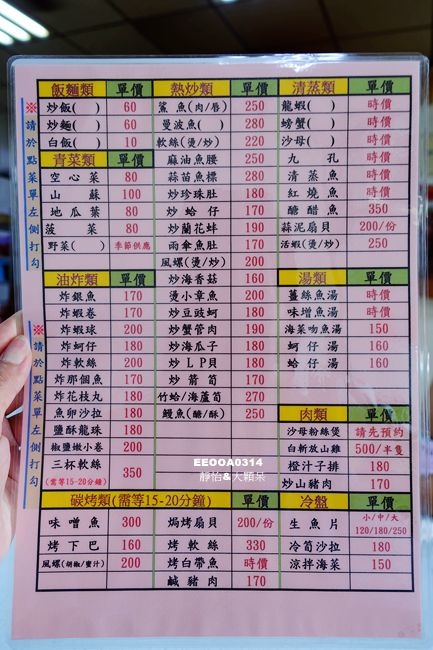 飯麵類 單價
炒飯( ) 60
炒麵( ) 60
白飯( ) 10
青菜類 單價
空心菜 80
山蘇 100
地瓜葉 80
菠菜 80
野菜( ) 季節供應
油炸類 單價
炸銀魚 170
炸蝦卷 170
炸蝦球 200
炸蚵仔 180
炸軟絲 200
炸那個魚 170
炸花枝丸 180
魚卵沙拉 180
鹽酥龍珠 180
椒鹽嫩小卷 200
三杯軟絲 350
(需等15-20分鐘)
※請於點菜單左側打勾
※請於點菜單左側打勾
熱炒類 單價
鯊魚(肉/唇) 250
曼波魚( ) 280
軟絲(燙/炒) 220
麻油魚腰 250
蒜苗魚標 280
炒珍珠肚 180
炒蛤仔 170
炒蘭花蚌 190
雨傘魚肚 170
風螺(燙/炒) 200
炒海香菇 160
燙小章魚 200
炒豆豉蚵 180
炒蟹管肉 190
炒海瓜子 180
炒LP貝 180
炒箭筍 170
竹蛤/海蘆筍 270
鰻魚(醋/酥) 250
清蒸類 單價
龍蝦( ) 時價
螃蟹( ) 時價
沙母( ) 時價
九孔 時價
清蒸魚 時價
紅燒魚 時價
醣醋魚 350
蒜泥扇貝 200/份
活蝦(燙/炒) 250
湯類 單價
薑絲魚湯 時價
味增魚湯 時價
海菜吻魚湯 150
蚵仔湯 160
蛤仔湯 160
肉類 單價
沙母粉絲煲 請先預約
白斬放山雞 500/半隻
橙汁子排 180
炒山豬肉 170
EEOOA0314
靜怡&大顆呆
碳烤類(需等15-20分鐘) 單價
味噌魚 300
烤下巴 160
風螺(胡椒/蜜汁) 200
焗烤扇貝 200/份
烤軟絲 330
烤白帶魚 時價
鹹豬肉 170
冷盤 單價
生魚片 小/中/大
120/180/250
冷筍沙拉 180
涼拌海菜 150